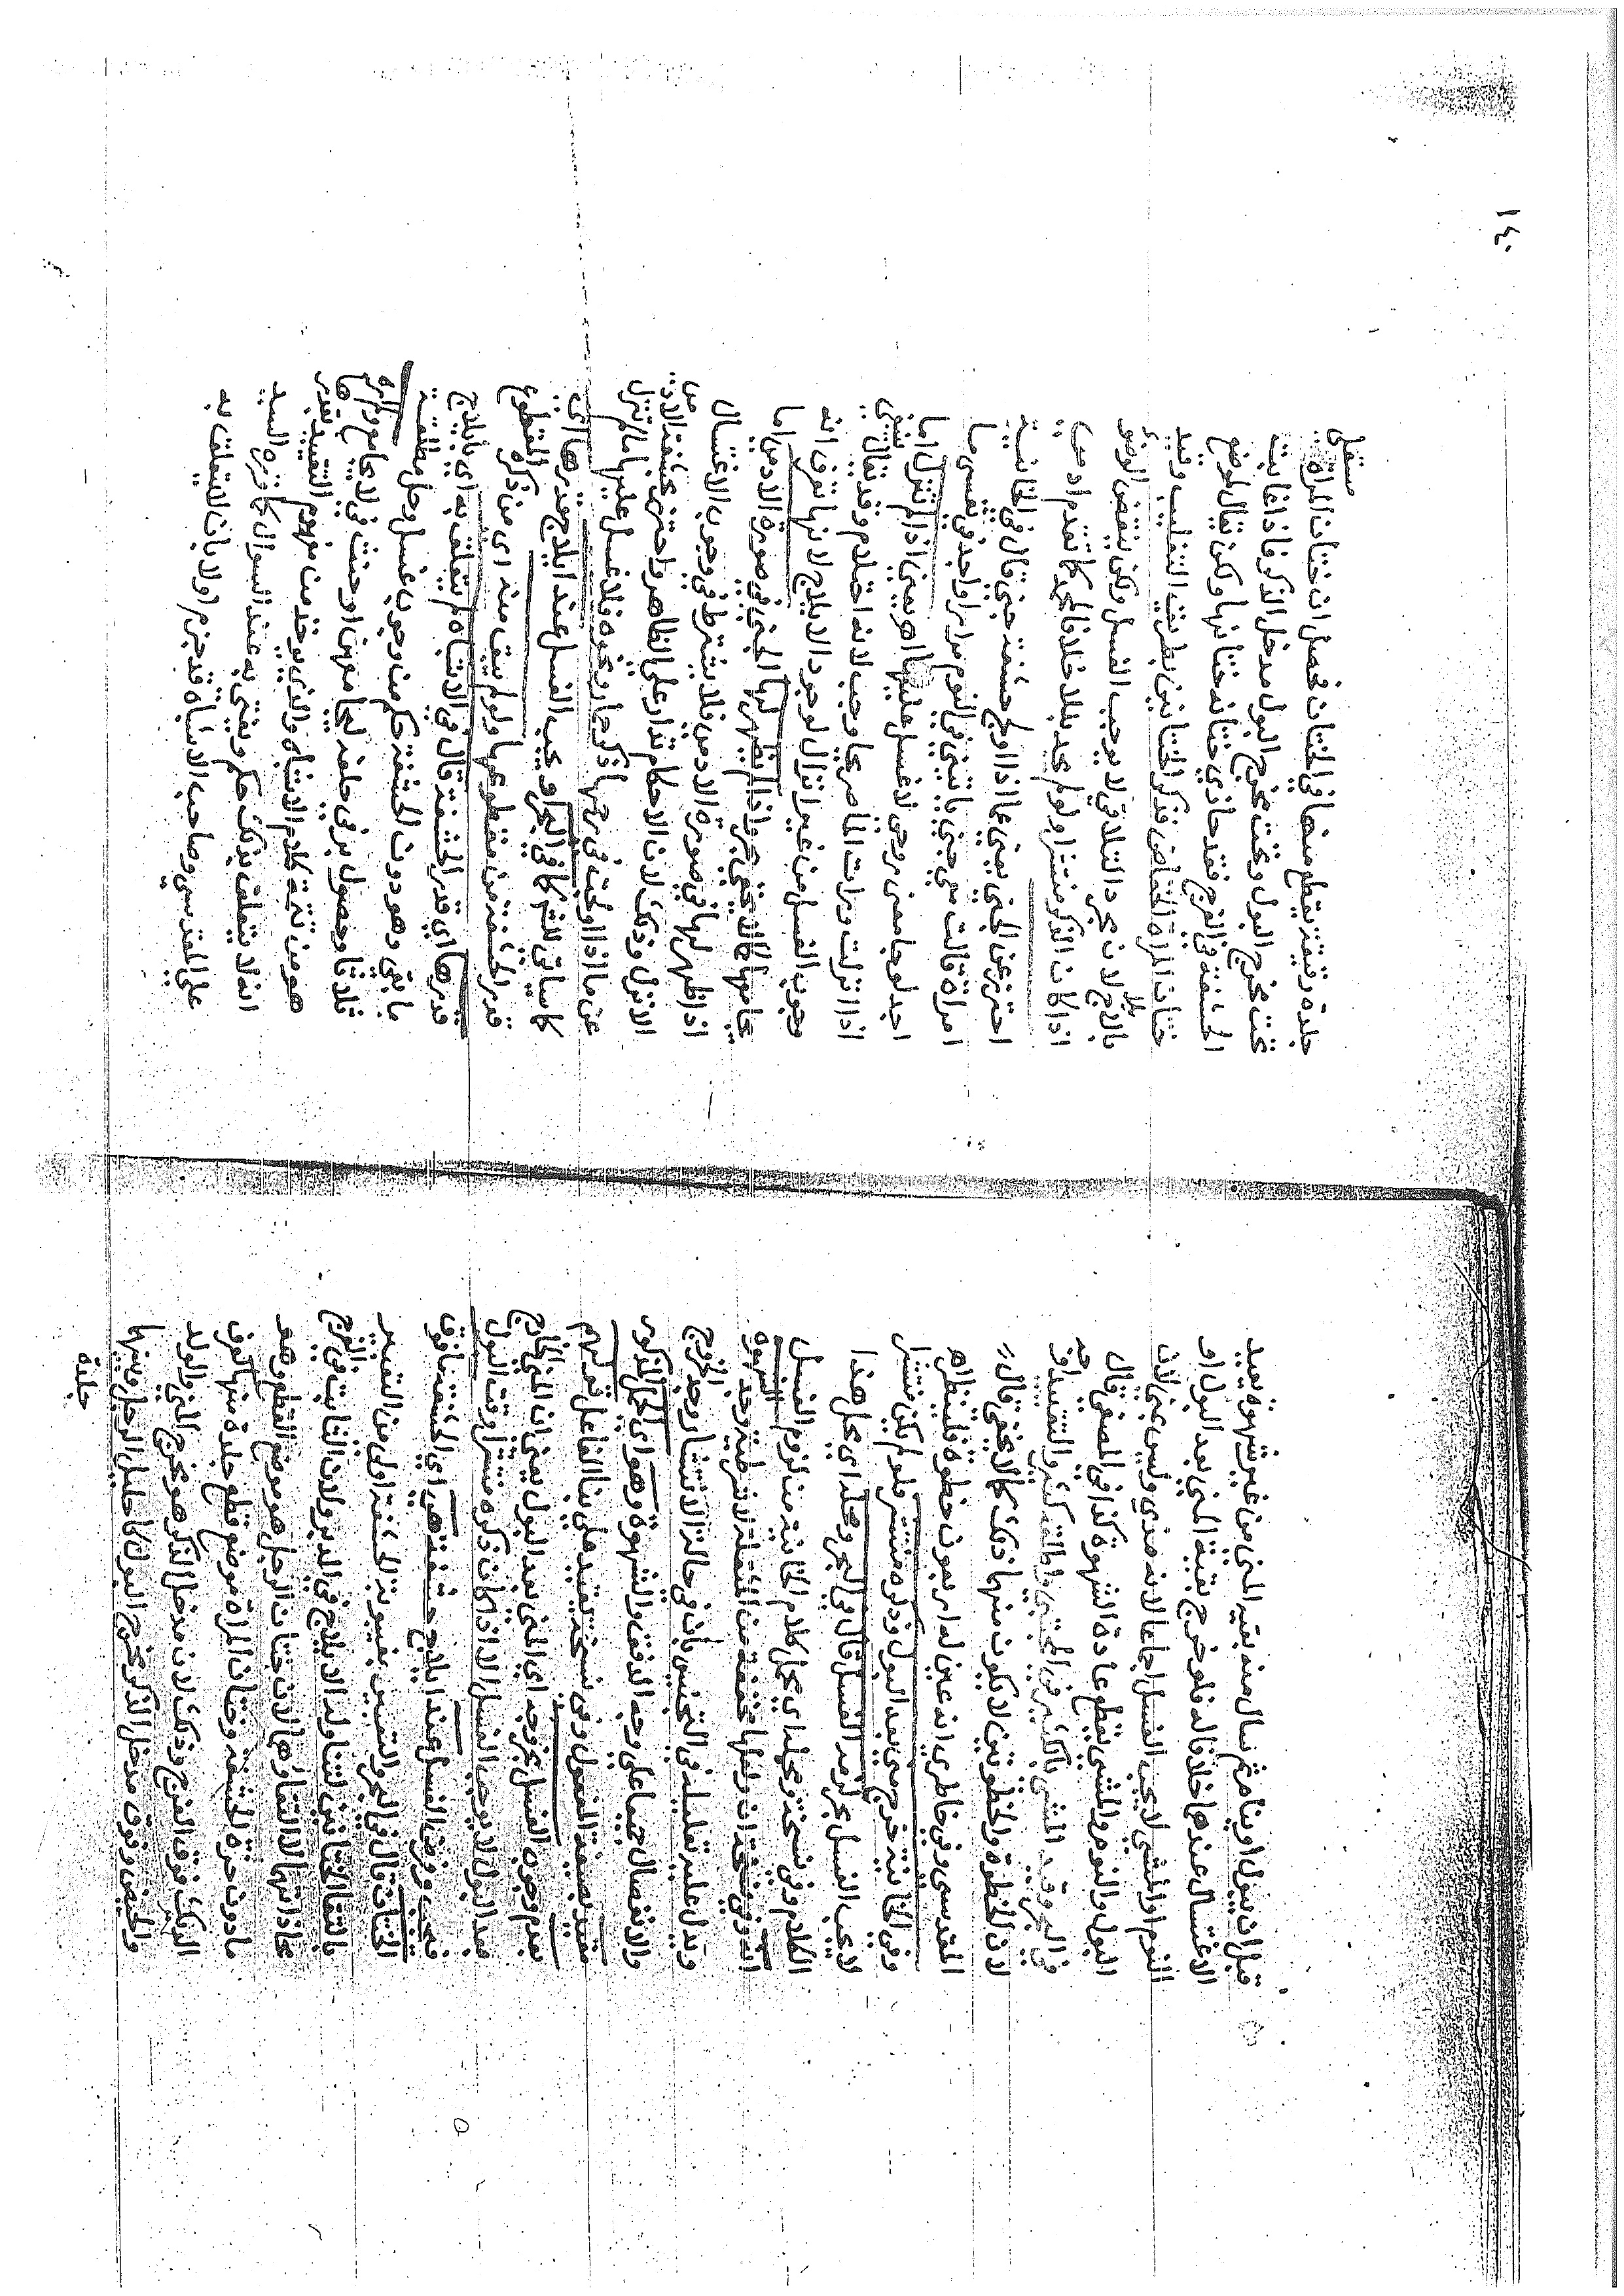 قبل ان يبول او ينام ثم سال منه بقية المني من غير شهوة يعيد
الاغتسال عندهما خلافا له فلو خرج بقية المني بعد البول او
النوم او المشي لا يجب الغسل اجماعا لانه مذي وليس بمني لان
البول والنوم والمشي يقطع مادة الشهوة كذا في المصفى قال
في البحر وقيد المشي بالكثير في المجتبى واطلقه كثير والتقييد اوجه
لان الخطوة والخطوتين لا يكون منهما ذلك كما لا يخفى قال
المقدسي وفي خاطري انه عين له اربعون خطوة فلينظر اهـ
وفي الخانية خرج مني بعد البول وذكره منتشر فلو لم يكن منتشرا
لا يجب الغسل بحر لزمه الغسل قال في البحر ومحله اي محل هذا
الكلام وفي نسخة ومحله اي محل كلام الخانية من لزوم الغسل
انه وفي نسخة ان ولعلها مخففة من الثقيلة لا شرطية وجد الشهوة
ويدل عليه تعليله في التجنيس بان في حالة الانتشار وجد الخروج
والانفصال جميعا على وجه الدفق والشهوة وهو اي المحل المذكور
مقيد بصيغة المفعول وفي نسخة تقييد على بنا الفاعل قولهم
بعدم وجوب الغسل بخروجه اي المني بعد البول يعني ان المني الخارج
بعد البول لا يوجب الغسل الا اذا كان ذكره منتشرا وقت البول
فيجب وفرض الغسل عند ايلاج حشفة هي اي الحشفة ما فوق
الختان قال في البحر التعبير بغيبوبة الحشفة اولى من التعبير
بالتقا الختانين لتناوله الايلاج في الدبر ولان الثابت في الفرج
محاذاتهما لا التقاؤهما لان ختان الرجل هو موضع القطع وهو
ما دون حزة الحشفة وختان المراة موضع قطع جلدة منها كعرف
الديك فوق الفرج وذلك لان مدخل الذكر هو مخرج المني والولد
والحيض وفوق مدخل الذكر مخرج البول كاحليل الرجل وبينهما
جلدة
١٤٠
جلدة رقيقة يقطع منها في الختان فحصل ان ختان المراة مستفل
تحت مخرج البول وتحت مخرج البول مدخل الذكر فاذا غابت
الحشفة في الفرج فقد حاذى ختانه ختانها ولكن يقال لموضع
ختان المراة الخفاض فذكر الختانين بطريق التغليب وقيد
بالايلاج لان مجرد التلاقي لا يوجب الغسل ولكن ينقض الوضو
اذا كان الذكر منتشرا ولو لم يجد بللا خلافا لمحمد كما تقدم ادمي
احترز عن الجني يعني عما اذا اولج حشفته جني قال في الخانية
امراة قالت معي جني ياتيني في النوم مرارا واجد في نفسي ما
اجد لو جامعني زوجي لا غسل عليها اهـ يعني اذا لم تنزل اما
اذا انزلت وبرات الما صريحا وجب لانه احتلام وقد يقال ينبغي
وجوب الغسل من غير انزال لوجود الايلاج لانها تعرف انه
يجامعها كما لا يخفى بحر واذا لم يظهر لها الجني في صورة الادمي اما
اذا ظهر لها في صورة الادمي فلا يشترط في وجوب الاغتسال
الانزال وذلك لان الاحكام تدار على الظاهر واحترز بحشفة الادمي
عن ما اذا اولجت في فرجها ذكر حمار ونحوه فلا غسل عليها ما لم تنزل
كما سياتي للشرح كما في البحر او يجب الغسل عند ايلاج قدرها اي
قدر الحشفة من مقطوعها ولو لم يبق منه اي من ذكره المقطوع
قدرها اي قدر الحشفة قال في الاشباه لم يتعلق به اي بايلاج
ما بقي وهو دون الحشفة حكم من وجوب غسل وحل مطلقته
ثلاثا وحصول بر في حلفه ليجامعن او حنث في لا يجامع ولم اره
هو من تتمة كلام الاشباه والذي يوخذ من مفهوم التقييد بقدرها
انه لا يتعلق بذلك حكم ويفتى به عند السوال كما قرره السيد
على المقدسي وصاحب الاشباه قد جزم اولا بان لا يتعلق به